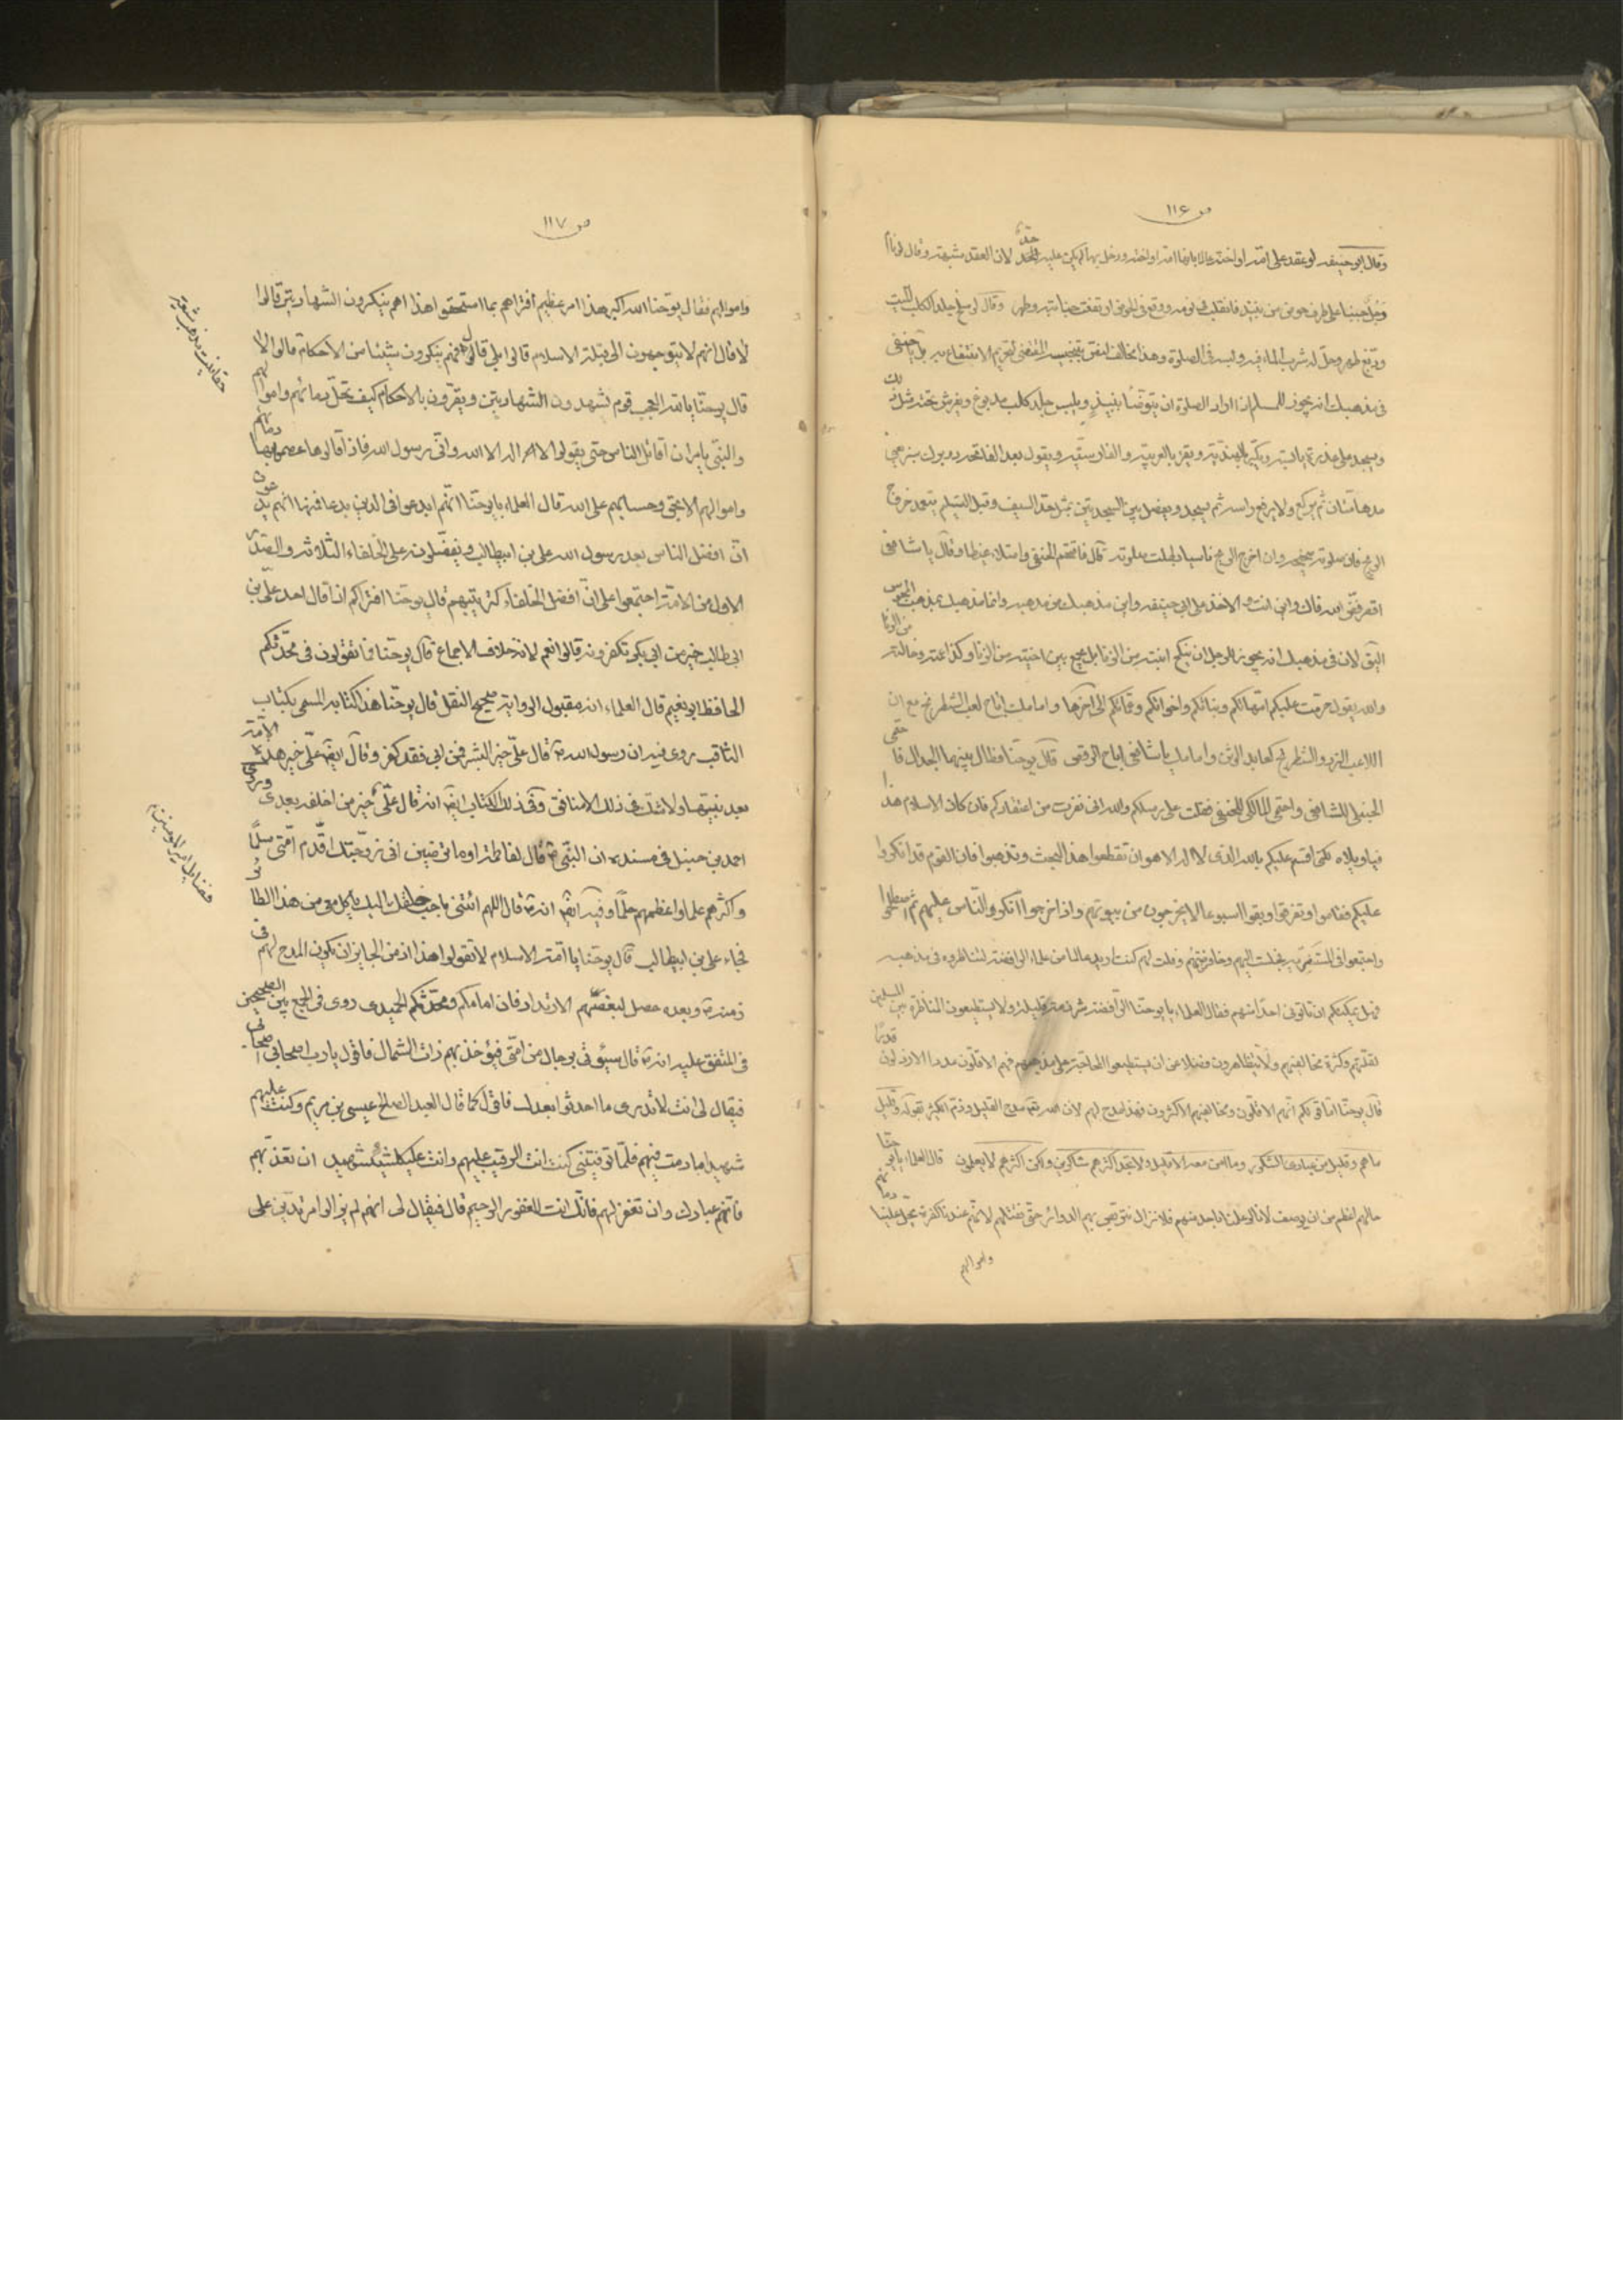 ص ١١٦
وقال ابو حنيفه لو عقد على امه او اخته عالما بانها امه او اخته ودخل بها لم يكن عليه حد لان العقد شبهة وقال لو نام
جنبا على طرف حوض من نبيذ فانقلب في نومه ووقع في الحوض ارتفعت جنابته وطهر وقال لو سلخ جلد الكلب الميت
ودبغ طهر وحل له شرب الماء فيه ولبسه في الصلوة وهذا مخالف لنص تنجيس المقتضى لتحريم الانتفاع به يا حنفى
في مذهبك انه يجوز للمسلم اذا اراد الصلوة ان يتوضأ بنبيذ ويلبس جلد كلب مدبوغ ويفرش تحته مثل ذلك
ويسجد على عذرة يابسة ويكبر بالهندية ويقرء بالعبرية والفارسية ويقول بعد الفاتحة دو برك سبز يعنى
مدهامتان ثم يركع ولا يرفع راسه ثم يسجد ويفصل بين السجدتين بمثل حد السيف وقبل التسليم يتعمد خروج
الريح فان صلوته صحيحه وان اخرج الريح ناسيا بطلت صلوته قال فافحم الحنفى وامتلاء غيظا وقال يا شافعى
اقصر فض الله فاك واين انت والاخذ على ابى حنيفه واين مذهبك من مذهبه وانما مذهبك بمذهب المجوس
اليق لان في مذهبك انه يجوز للرجل ان ينكح ابنته من الزنا بل يجمع بين اختيه من الزنا وكذا عمته وخالته من الزنا
والله يقول حرمت عليكم امهاتكم وبناتكم واخواتكم وعماتكم الى اخرها واما مالك اباح لعب الشطرنج مع ان
اللاعب النرد والشطرنج كعابد الوثن واما مالك يا شافعى اباح الرقص قال يوحنا فطال بينهما الجدال فا حتمى
الحنبلى للشافعى واحتمى المالكى للحنفى فقلت على رسلكم والله انى نفرت من اعتقادكم فان كان الاسلام هذا
فيا ويلاه لكنى اقسم عليكم بالله الذى لا اله الا هو ان تقطعوا هذا البحث وتذهبوا فان القوم قد انكروا
عليكم فقاموا وتفرقوا وبقوا اسبوعا لا يخرجون من بيوتهم واذا خرجوا انكروا الناس عليهم ثم اصطلحوا
واجتمعوا في المستنصرية فجلست اليهم وفاوضتهم وقلت لهم كنت اريد عالما من علماء الرافضة لنناظره في مذهبه
فهل يمكنكم ان تاتونى احدا منهم فقال العلماء يا يوحنا الرافضة شرذمة قليلة ولا يستطيعون المناظرة بين المسلمين
لقلتهم وكثرة مخالفيهم ولا يتظاهرون فضلا عن ان يستطيعوا المحاجة على مذهبهم فهم الاقلون عددا الارذلون قدرا
قال يوحنا انما قولكم انهم الاقلون ومخالفيهم الاكثرون فهذا مدح لهم لان الله تعم مدح القليل وذم الكثير بقوله وقليل
ما هم وقليل من عبادى الشكور وما امن معه الا قليل ولا تجد اكثرهم شاكرين ولكن اكثرهم لا يعلمون قال العلماء يا يوحنا
حالهم اعظم من ان يوصف لانا لو علمنا باحد منهم فلا نزال نتربص بهم الدوائر حتى نقتلهم لانهم عندنا كفرة يحل علينا دمائهم
واموالهم
ص ١١٧
واموالهم فقال يوحنا الله اكبر هذا امر عظيم أفتراهم بما استحقوا هذا اهم ينكرون الشهادتين قالوا
لا قال انهم لا يتوجهون الى قبلة الاسلام قالوا بلى قال انهم ينكرون شيئا من الاحكام قالوا لا
قال يوحنا يا لله العجب قوم يشهدون الشهادتين ويقرون بالاحكام كيف تحل دمائهم واموالهم
والنبى يا مران اقاتل الناس حتى يقولوا لا اله الا الله وانى رسول الله فاذا قالوها عصموا بها دمائهم
واموالهم الا بحق وحسابهم على الله قال العلماء يا يوحنا انهم ابدعوا في الدين بدعا فمنها انهم يدعون
ان افضل الناس بعد رسول الله على بن ابيطالب ويفضلونه على الخلفاء الثلاثة والصدر
الاول من الامة اجتمعوا على ان افضل الخلفاء كترتيبهم قال يوحنا افتراكم اذا قال احد على بن
ابى طالب خير من ابى بكر تكفرونه قالوا نعم لانه خلاف الاجماع قال يوحنا فما تقولون في محدثكم
الحافظ ابو نعيم قال العلماء انه مقبول الرواية صحيح النقل قال يوحنا هذا كتابه المسمى بكتاب
الثاقب روى فيه ان رسول الله ص قال على خير البشر فمن ابى فقد كفر وقال ايضا على خير هذه الامة
بعد نبيها ولا يشك في ذلك الا منافق وفي ذلك الكتاب ايضا انه قال على خير من اخلفه بعدى وروى
احمد بن حنبل في مسنده ان النبى ص قال لفاطمة اوما ترضين انى زوجتك اقدم امتى سلما
واكثرهم علما واعظمهم حلما وفيه ايضا انه ص قال اللهم ائتنى باحب خلقك اليك ياكل معى من هذا الطائر
فجاء على بن ابيطالب قال يوحنا يا ائمة الاسلام لا تقولوا هذا اذ من الجايز ان يكون المدح لهم في
زمنه ص وبعده حصل لبعضهم الارتداد فان امامكم ومحدثكم الحميدى روى في الجمع بين الصحيحين
في المتفق عليه انه ص قال سيؤتى برجال من امتى فيؤخذ بهم ذات الشمال فاقول يا رب اصحابى اصحابى
فيقال لى انت لا تدرى ما احدثوا بعدك فاقول كما قال العبد الصالح عيسى بن مريم وكنت عليهم
شهيدا ما دمت فيهم فلما توفيتنى كنت انت الرقيب عليهم وانت على كل شئ شهيد ان تعذبهم
فانهم عبادك وان تغفر لهم فانك انت الغفور الرحيم قال فيقال لى انهم لم يزالوا مرتدين على
حقانيت مذهب شيعه
فضائل امير المومنين